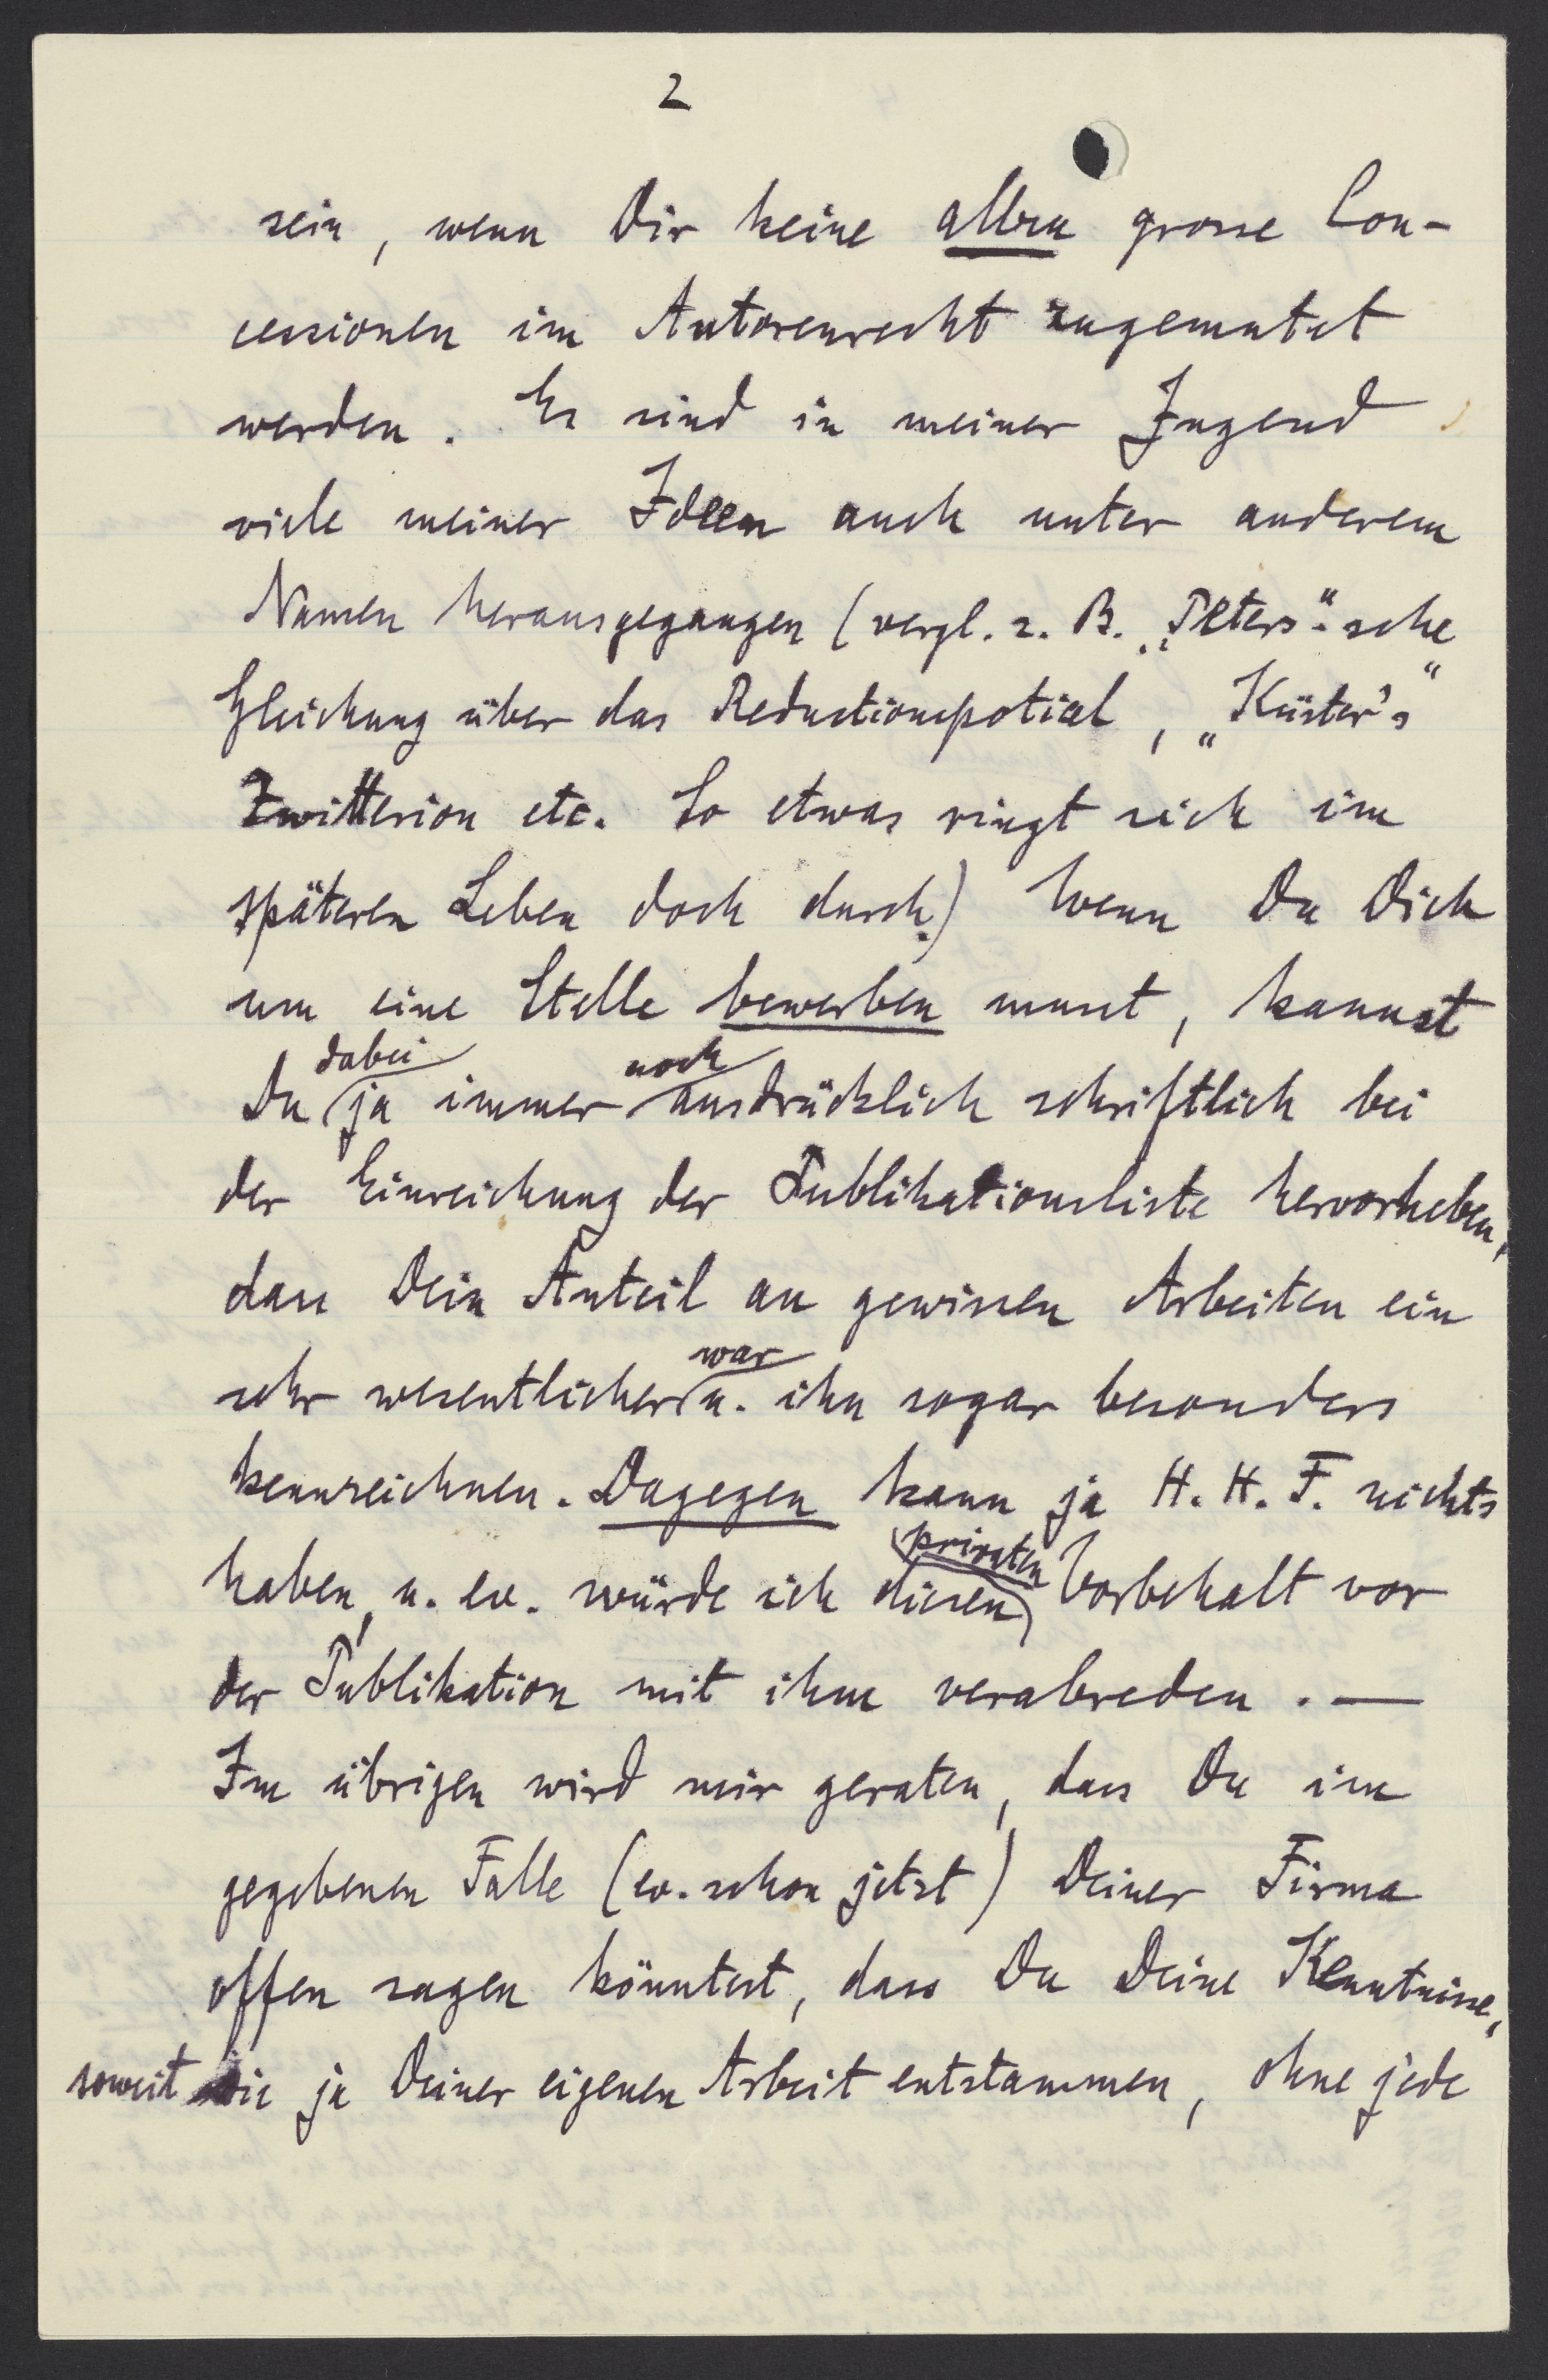 2
sein, wenn Dir keine allzu grosse Con-
cessionen im Autorenrecht zugemutet
werden. Es sind in meiner Jugend
viele meiner Ideen auch unter anderem
Namen herausgegangen (vergl. z. B. „Peters"-sche
Gleichung über das Reductionspotial, „Küster's"
Zwitterion etc. So etwas ringt sich im
späteren Leben doch durch.) Wenn Du Dich
um eine Stelle bewerben musst, kannst
Du dabei ja immer noch ausdrücklich schriftlich bei
der Einreichung der Publikationsliste hervorheben,
dass Dein Anteil an gewissen Arbeiten ein
sehr wesentlicher war u. ihn sogar besonders
kennzeichnen. Dagegen kann ja H. H. F. nichts
haben, u. ev. würde ich diesen privaten Vorbehalt vor
der Publikation mit ihm verabreden. —
Im übrigen wird mir geraten, dass Du im
gegebenen Falle (ev. schon jetzt) Deiner Firma
offen sagen könntest, dass Du Deine Kenntnisse,
soweit sie ja Deiner eigenen Arbeit entstammen, ohne jede